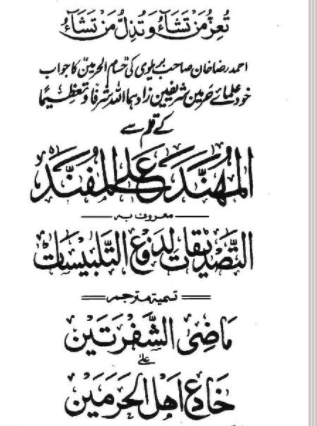 تُعِزُّ مَنْ تَشَآءُ وَ تُذِلُّ مَنْ تَشَآءُ
احمد رضا خان صاحب بریلوی کی حُسام الحرمین کا جواب
خود علمائے حرمین شریفین زادہما اللہ شرفاً و تعظیماً
کے قلم سے
المُهَنَّد عَلَى المُفَنَّد
معروف بہ
التَّصدِيقَات لِدَفعِ التَّلبِيسَات
تسمیۂ مترجمہ
مَاضِی الشَّفرَتَین
عَلٰی
خَادِعِ اَهلِ الحَرَمَین